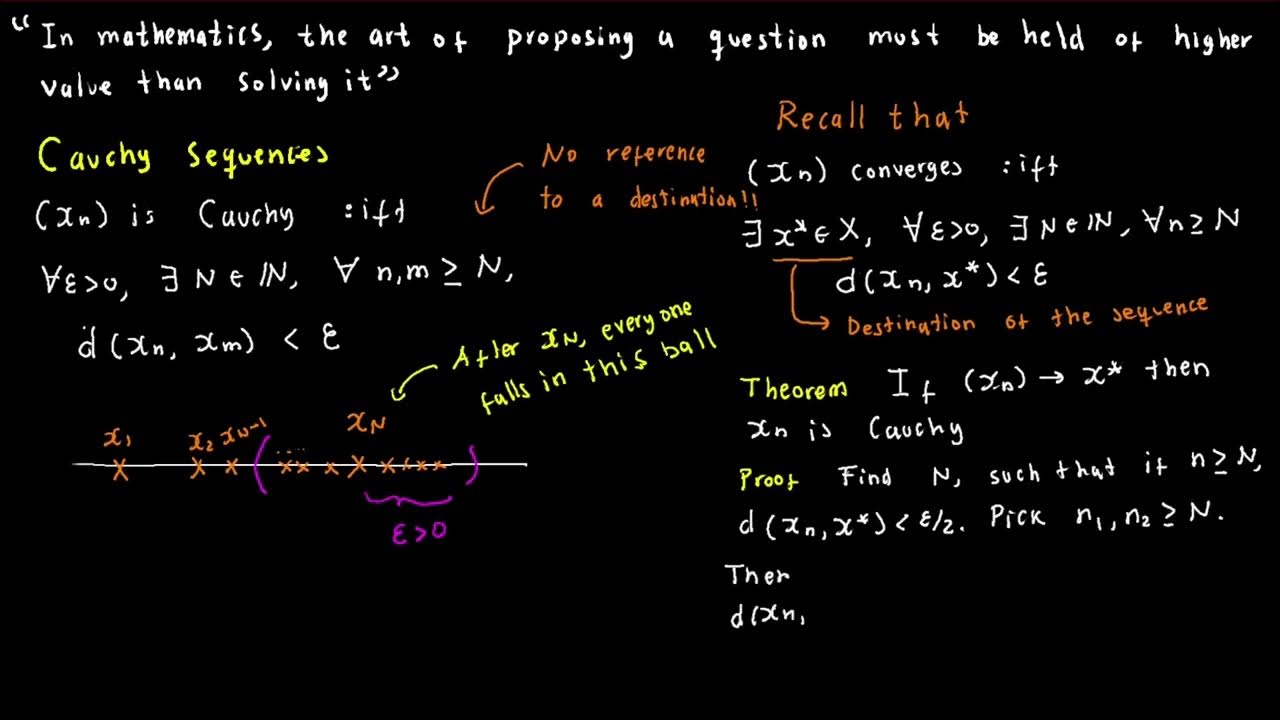 “In mathematics, the art of proposing a question must be held of higher
value than solving it”
Cauchy Sequences
(xₙ) is Cauchy :iff
∀ε>0, ∃ N ∈ ℕ, ∀ n,m ≥ N,
d(xₙ, xₘ) < ε
No reference
to a destination!!
After x_N, everyone
falls in this ball
x₁ x₂ x_{N-1} x_N
ε>0
Recall that
(xₙ) converges :iff
∃ x* ∈ X, ∀ε>0, ∃ N ∈ ℕ, ∀n ≥ N
d(xₙ, x*) < ε
Destination of the sequence
Theorem If (xₙ) → x* then
xₙ is Cauchy
Proof Find N, such that if n ≥ N,
d(xₙ, x*) < ε/2. Pick n₁, n₂ ≥ N.
Then
d(xₙ,